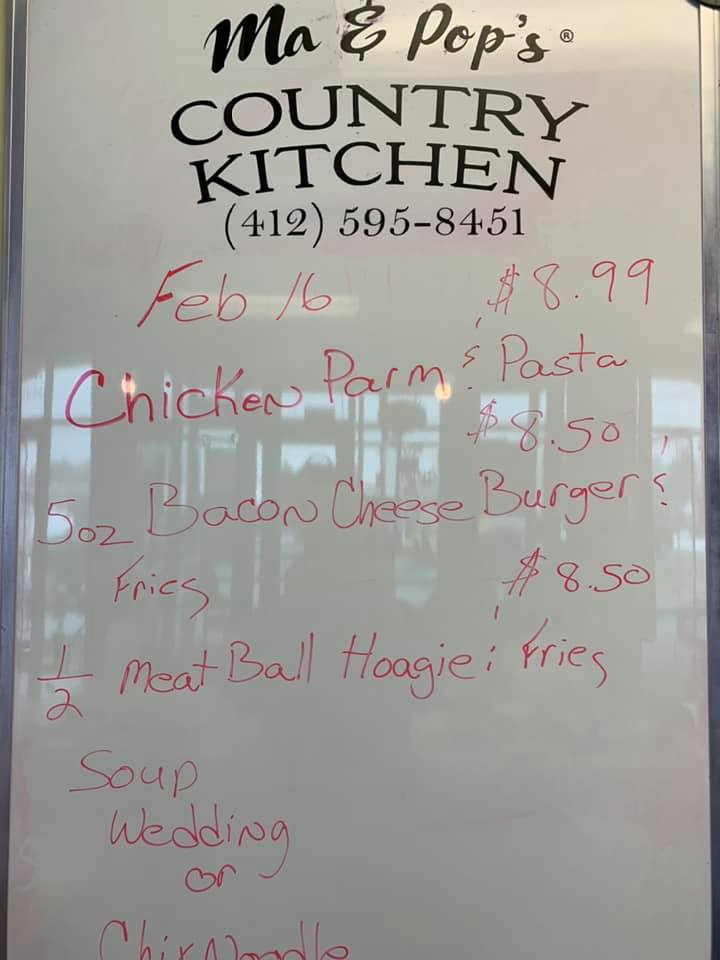 Ma & Pop's®
COUNTRY
KITCHEN
(412) 595-8451
Feb 16 $8.99
Chicken Parm & Pasta
$8.50
5oz Bacon Cheese Burger &
Fries $8.50
1/2 Meat Ball Hoagie & Fries
Soup
Wedding
or
Chix Noodle